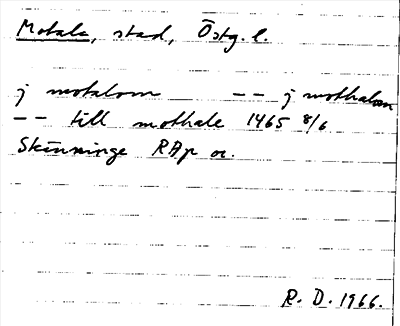 Motala, stad, Östg. l.
j motalom -- j mothalom
-- till mothale 1465 8/6
Skänninge RAp or.
R. D. 1966.